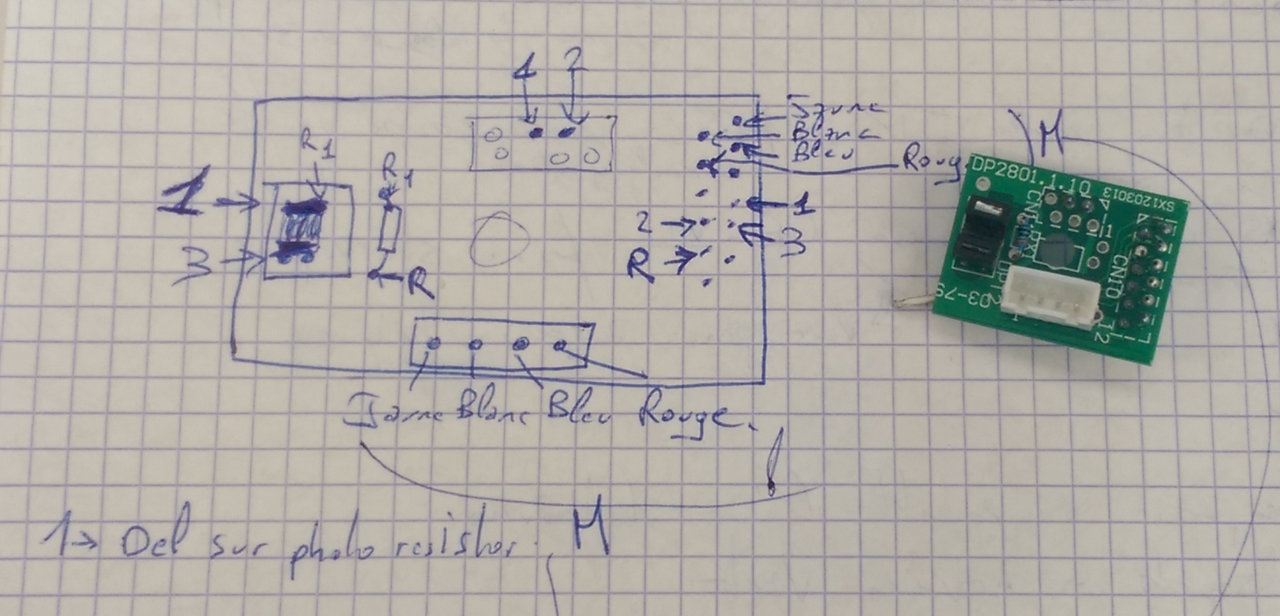 1 2
R1
R1
1
3
R
Jaune
Blanc
Bleu
Rouge
1
2
3
R
M
DP2801.1.10
SX1203013
CN1
CN10
12
7
1
Jaune Blanc Bleu Rouge.
!
1→ Del sur photo resistor.
M